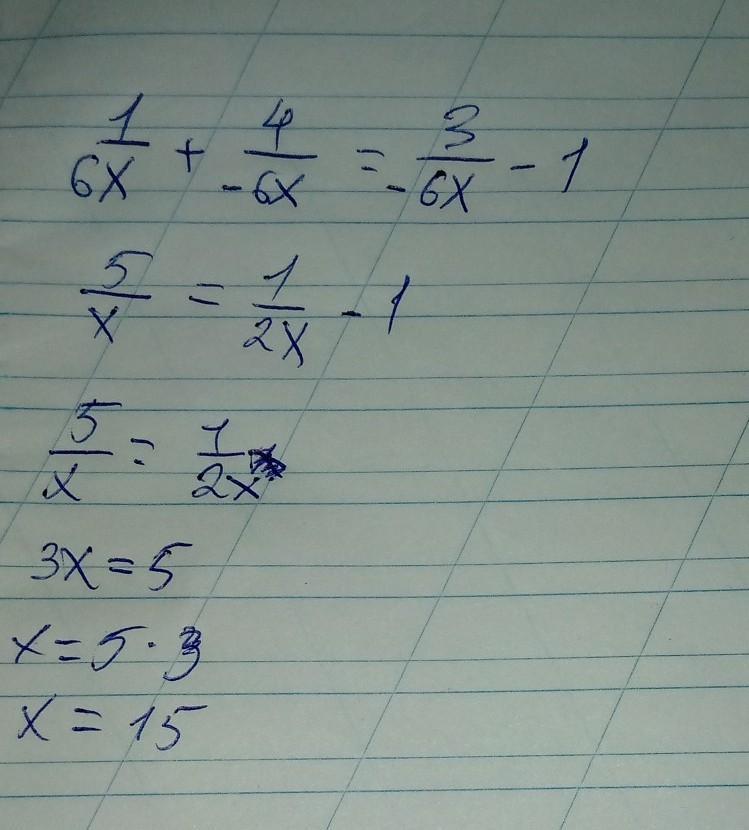 1/6x + 4/-6x = 3/-6x - 1
5/x = 1/2x - 1
5/x = 1/2x
3x = 5
x = 5 · 3
x = 15